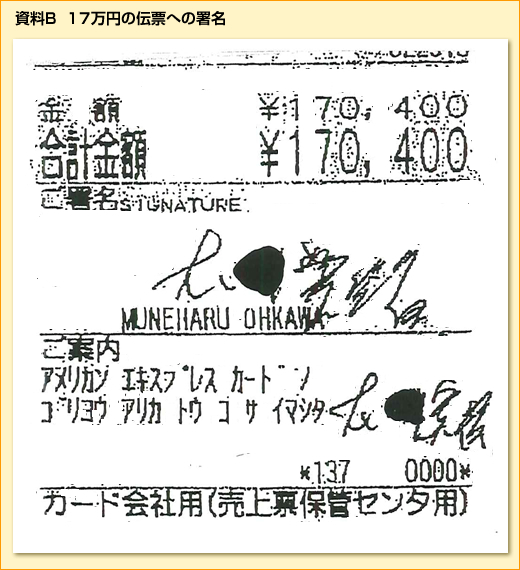 資料B 17万円の伝票への署名
金 額 ¥170,400
合計金額 ¥170,400
ご署名SIGNATURE:
MUNEHARU OHKAWA
ご案内
アメリカン エキスプレス カード゛ン
ゴリヨウ アリカ トウ コ サ イマシタ
*137 0000*
カード会社用(売上票保管センタ用)